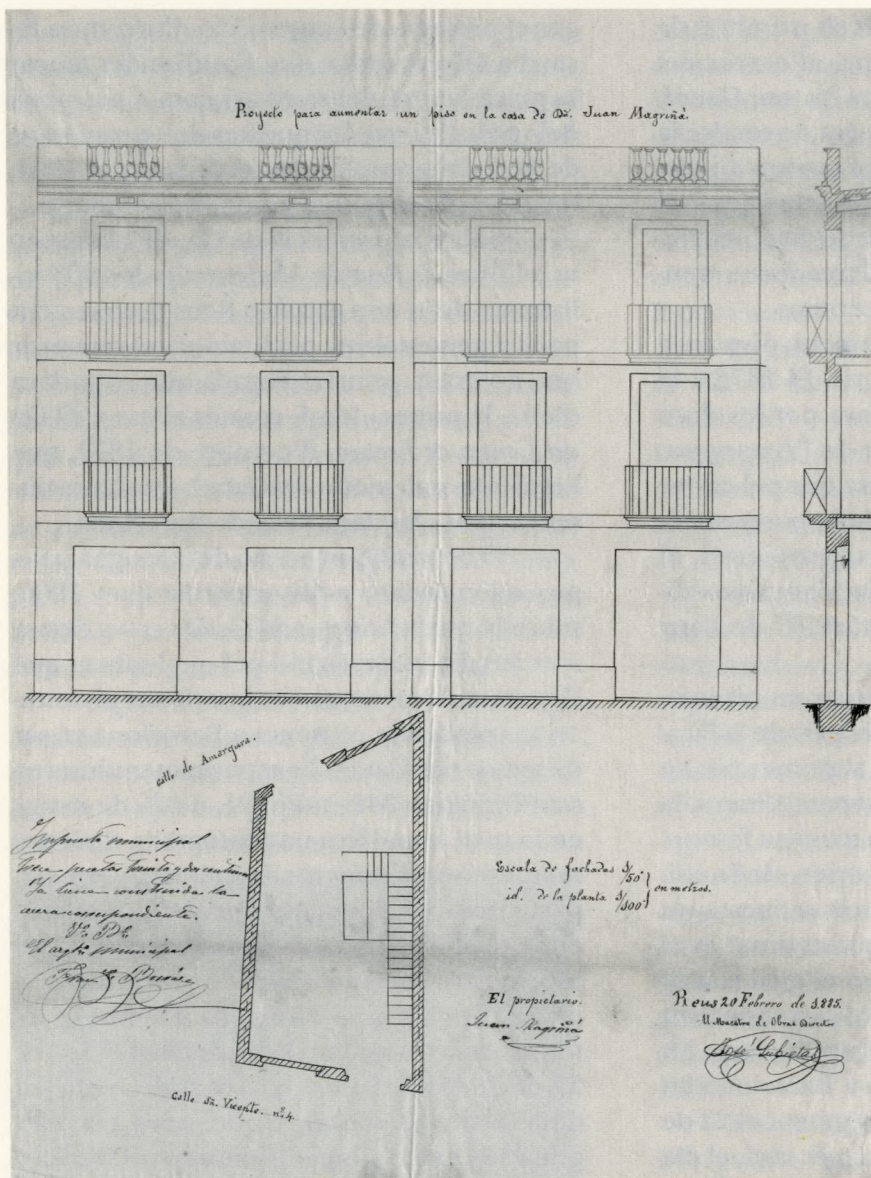 Proyecto para aumentar un piso en la casa de Dn. Juan Magriñá.
Calle de Amargura.
Impuesto municipal
trece pesetas treinta y dos céntimos
Ya tiene construida la
acera correspondiente.
Vº Bº
El arqto municipal
Escala de fachadas 1/50
id. de la planta 1/100 } en metros.
El propietario.
Juan Magriñá
Reus 20 Febrero de 1.885.
El Maestro de Obras Director
José Subietas
Calle Sn. Vicente. nº 4.